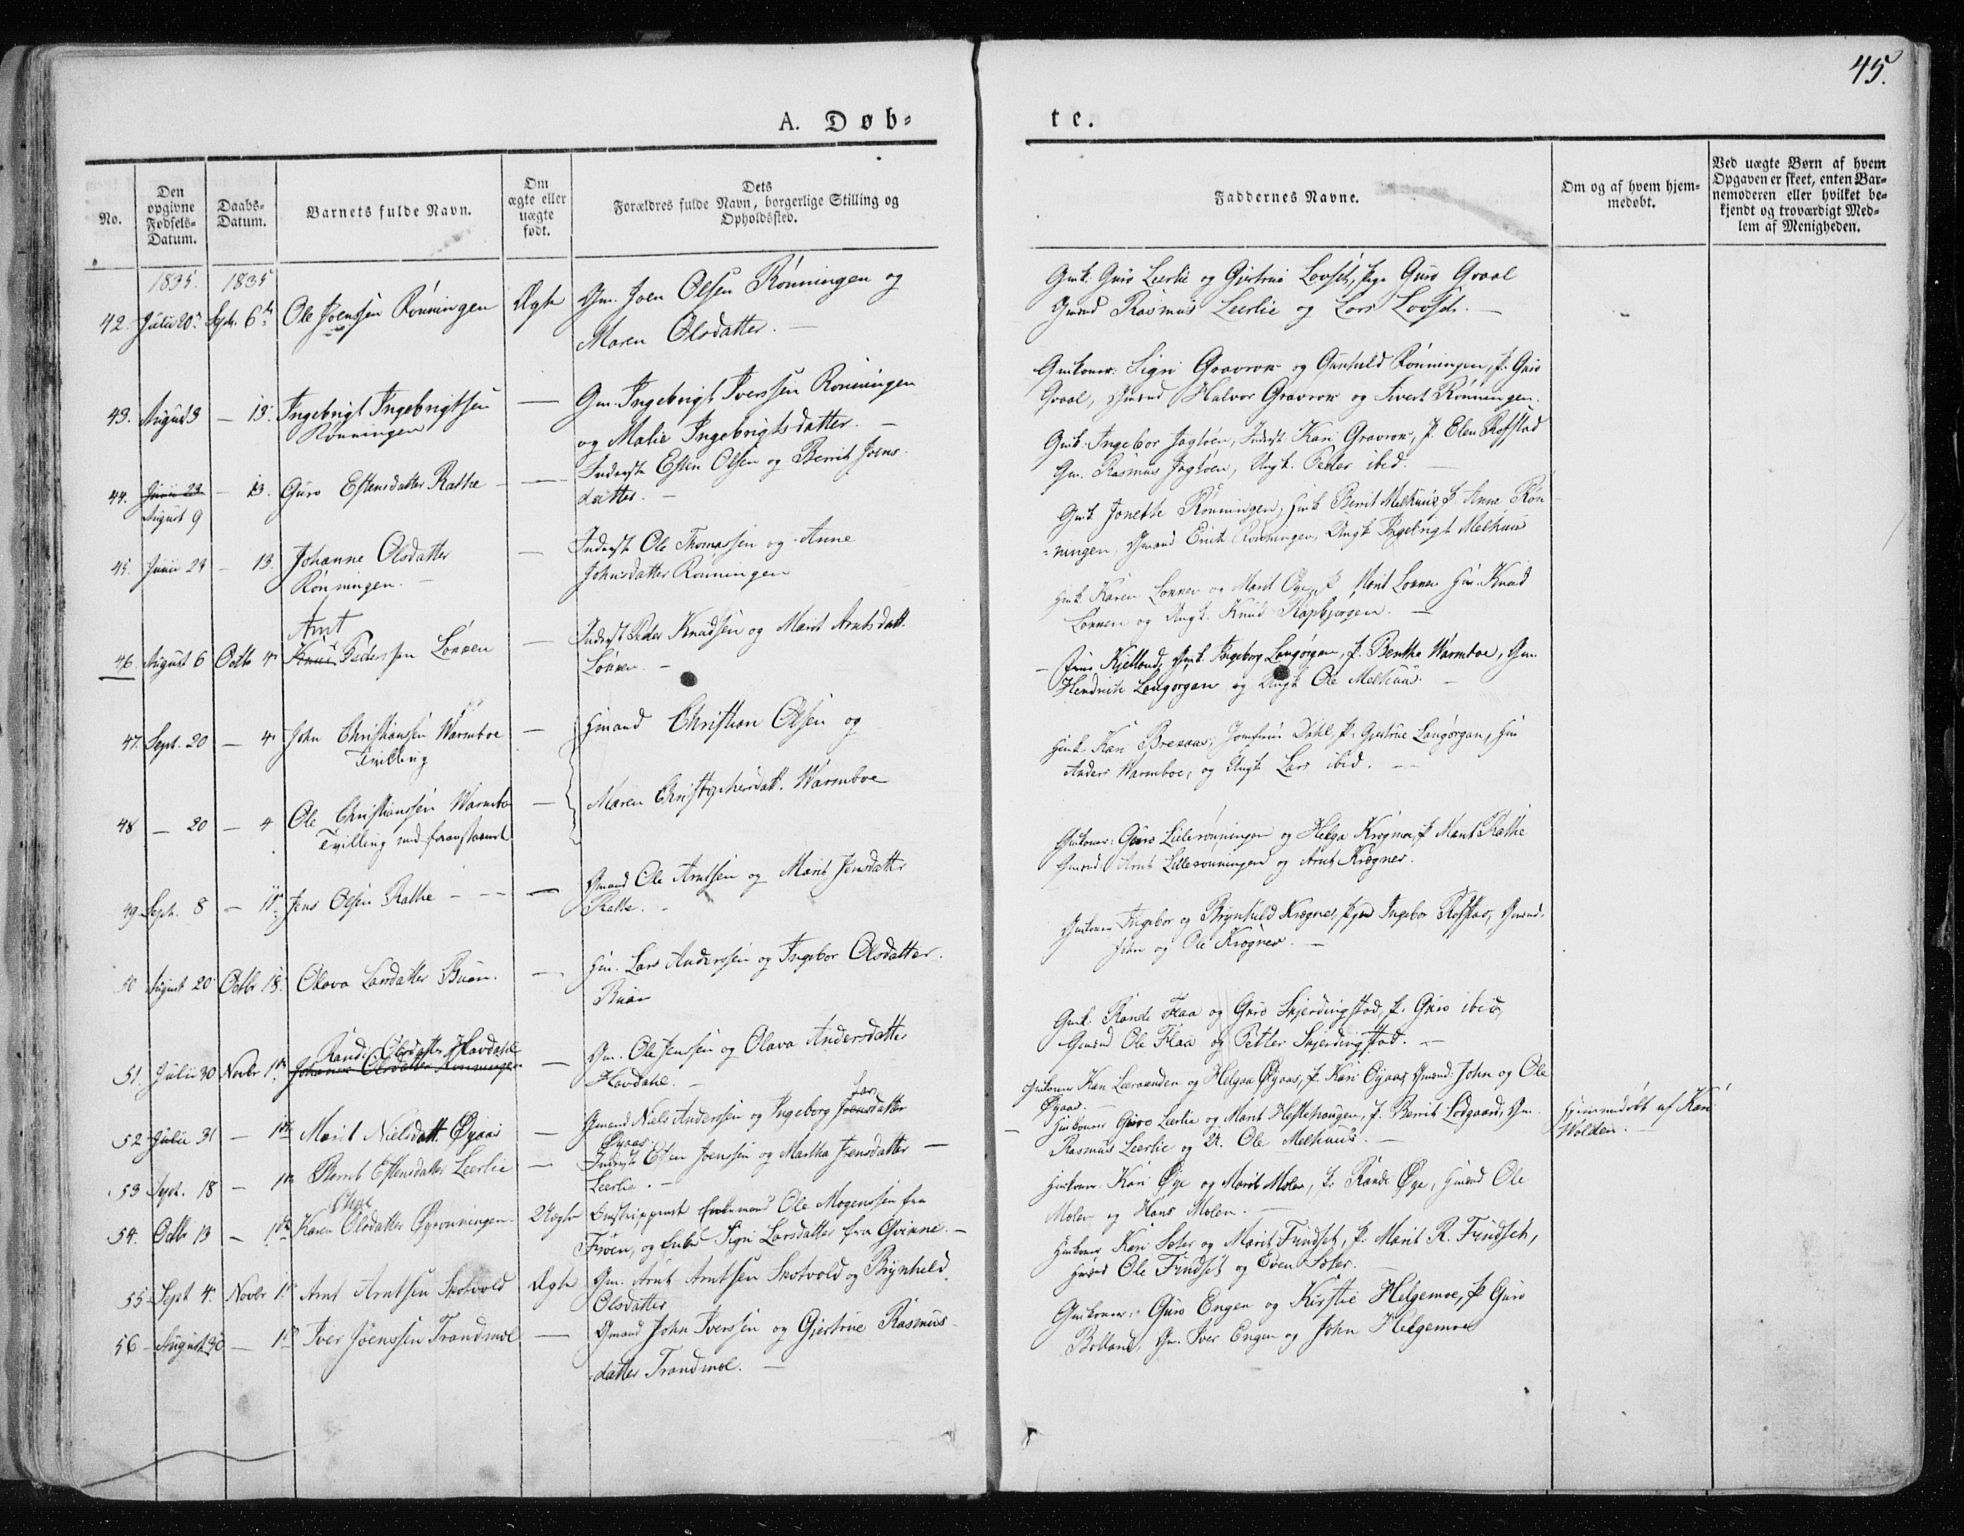 45.
A. Døb-
te.
No.
Den opgivne Fødsels-Datum.
Daabs-Datum.
Barnets fulde Navn.
Om ægte eller uægte født.
Dets Forældres fulde Navn, borgerlige Stilling og Opholdssted.
Faddernes Navne.
Om og af hvem hjem-medøbt.
Ved uægte Børn af hvem Opgaven er skeet, enten Bar-nemoderen eller hvilket be-kjendt og troværdigt Med-lem af Menigheden.
1835. 1835
42. Julii 20 Sept. 6 Ole Joenssen Rønningen Ægte Gm. Joen Olsen Rønningen og
Maren Olsdatter. —
Gmk. Guro Leerlie og Gjertrue Lovset, Pige Guro Graal
Gmand Rasmus Leerlie og Lars Lovset. —
43. August 3 — 13. Ingebrigt Ingebrigtsen — Gm. Ingebrigt Iverssen Rønningen
Rønningen og Malie Ingebrigtsdatter. —
Gmkoner: Sigri Gravrok og Gunhild Rønningen, P. Guro
Graal, Gmænd Halvor Gravrok og Sivert Rønningen.
44. Junii 23 — 13. Guro Estensdatter Rathe — Inderst Esten Olsen og Berrit Joens-
August 9 datter. —
Gmk. Ingebor Jagtøen, Inderst. Kari Gravrok, P. Elen Rofstad
Gm. Rasmus Jagtøen, Ungk. Peder ibid. —
45. Junii 23 — 13. Johanne Olsdatter — Inderst Ole Thomassen og Anne
Rønningen. — Johnsdatter Rønningen
Gmk. Jonette Rønningen, Hmk Berrit Melhuus, P. Anne Røn-
ningen, Gmand Erik Rønningen, Ungk Ingebrigt Melhuus
46. August 6 Octb 4 Arnt
Pederssen Lønnen — Inderst Peder Knudsen og Marit Arntsdatt.
Lønnen. —
Hmk Karen Lønnen og Marit Øye, P. Marit Lønnen Hm. Knud
Lønnen og Ungk. Knud Rapbjørgen. —
47. Sept. 20 — 4 John Christiansen Warmboe — Hmand Christian Olsen og
Tvilling
Kjelland, Gmk. Ingeborg Langørgen, P. Bentha Warmboe, Gm.
Hendrik Langørgen og Ungk Ole Melhuus. —
48 — 20 — 4 Ole Christianssen Warmboe — Maren Christophersdatt. Warmboe
Tvilling med foranstaaende
Hmk. Kari Brekaas, Jomfrue Dahl, P. Gjertrue Langørgen, Hm
Anders Warmboe, og Ungk Lars ibid. —
49. Sept. 8 — 11 Jens Olsen Rathe — Gmand Ole Arntsen og Marit Jensdatter
Rathe. —
Gmkoner: Guro Lillerønningen og Helga Krogner, P. Marit Rathe
Gmænd: Arnt Lillerønningen og Arnt Krogner.
50 August 20 Octbr 18. Olava Larsdatter Buan. — Hm. Lars Anderssen og Ingebor Olsdatter.
Buan
Gmkoner Ingebor og Brynhild Krogner, Pigen Ingebor Rofstad, Gmænd.
John og Ole Krogner. —
51. Julii 30 Novbr 1 Rande Olsdatter Hovdahl
Johanne Olsdatter Rønningen — Gm. Ole Jenssen og Olava Andersdatter
Hovdahl. —
Gmk. Rande Flaa og Guro Skjerdingstad, P. Guro ibid,
Gmænd Ole Flaa og Petter Skjerdingstad. —
52 Julii 31 — 1 Marit Nielsdatt. Øyaas — Gmand Niels Anderssen og Ingeborg Lars
datter
Øyaas
Gmkoner Kari Leeraanden og Helgaa Øyaas, P. Kari Øyaas Gmænd: John og Ole
Øyaas.
53 Sept. 18 — 1 Berrit Estensdatter Leerlie — Inderst Esten Joenssen og Martha Jensdatter —
Leerlie. —
Gmkoner Guro Leerlie og Marit Hestehaugen, P. Berrit Lodgaard, Gm.
Rasmus Leerlie og Ole Melhuus. —
Hjemmedøbt af Kari
Wolden. —
54. Octbr 13 — 1 Karen Olsdatter Øyrønningen. Uægte Enkemand Ole Mogenssen fra
og Sigri Larsdatter fra Qvinne. —
Hmkoner Kari Øye og Marit Molen, P. Rande Øye, Hmænd Ole
Molen og Hans Molen. —
55 Sept 4 Novbr 1 Arnt Arntsen Skotvold Ægte Gm. Arnt Arntsen Skotvold og Brynhild
Olsdatter
Hmkoner Kari Soter og Marit Frudset, P. Marit R. Frudset,
Hmænd Ole Frudset og Even Soter.
56 August 30 — 1 Iver Joenssen Trandmoe — Gmand John Iverssen og Gjertrue Rasmus-
datter Trandmoe. —
Gmkoner: Guro Engen og Kirstie Helgemoe, P. Guro
Bolland, Gm. Iver Engen og John Helgemoe